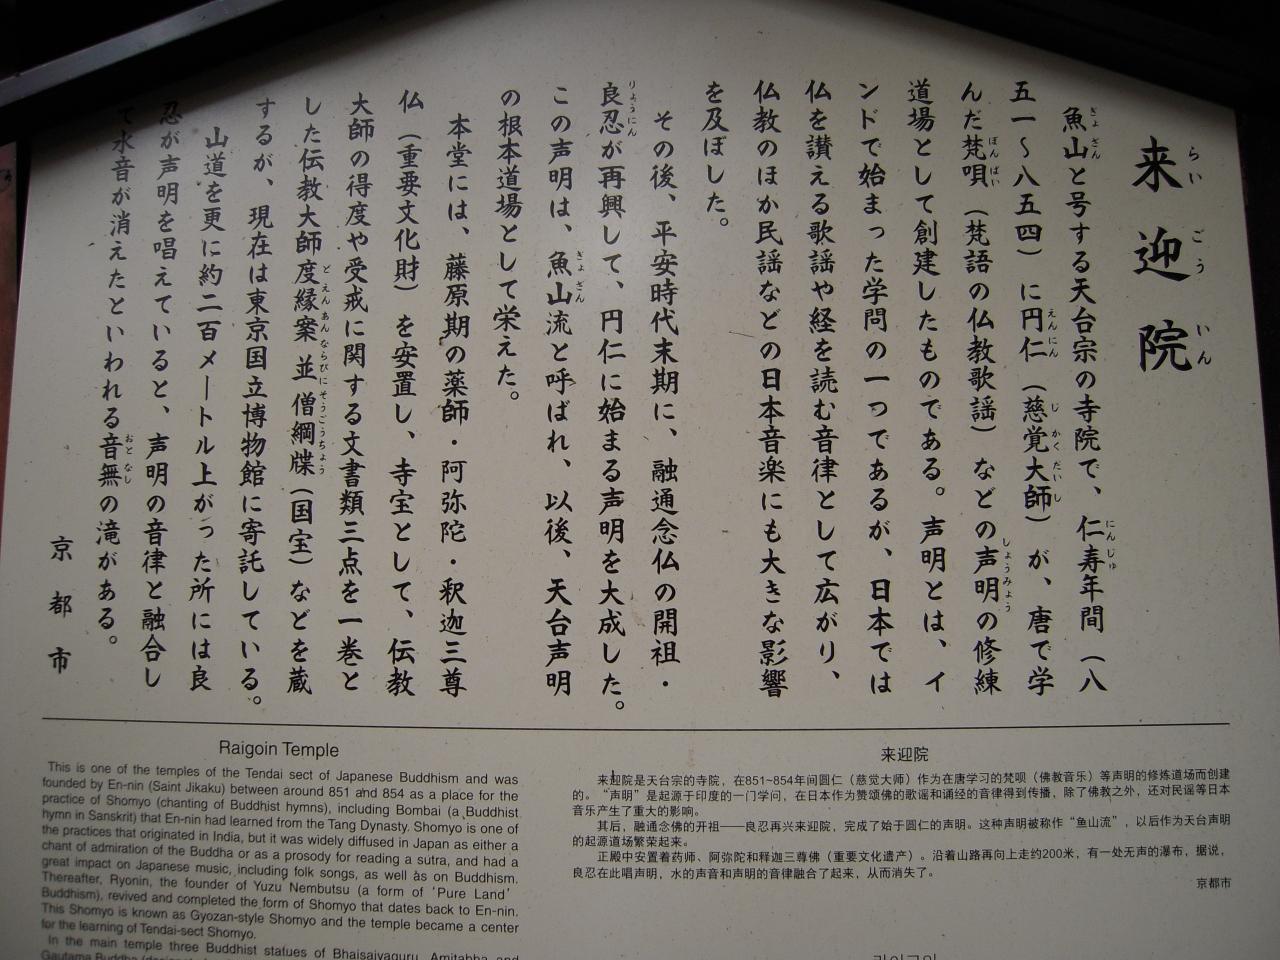 来迎院
らいごういん
魚山と号する天台宗の寺院で、仁寿年間（八
五一～八五四）に円仁（慈覚大師）が、唐で学
んだ梵唄（梵語の仏教歌謡）などの声明の修練
道場として創建したものである。声明とは、イ
ンドで始まった学問の一つであるが、日本では
仏を讃える歌謡や経を読む音律として広がり、
仏教のほか民謡などの日本音楽にも大きな影響
を及ぼした。
その後、平安時代末期に、融通念仏の開祖・
良忍が再興して、円仁に始まる声明を大成した。
この声明は、魚山流と呼ばれ、以後、天台声明
の根本道場として栄えた。
本堂には、藤原期の薬師・阿弥陀・釈迦三尊
仏（重要文化財）を安置し、寺宝として、伝教
大師の得度や受戒に関する文書類三点を一巻と
した伝教大師度縁案並僧綱牒（国宝）などを蔵
するが、現在は東京国立博物館に寄託している。
山道を更に約二百メートル上がった所には良
忍が声明を唱えていると、声明の音律と融合し
て水音が消えたといわれる音無の滝がある。
京都市
Raigoin Temple
This is one of the temples of the Tendai sect of Japanese Buddhism and was
founded by En-nin (Saint Jikaku) between around 851 and 854 as a place for the
practice of Shomyo (chanting of Buddhist hymns), including Bombai (a Buddhist
hymn in Sanskrit) that En-nin had learned from the Tang Dynasty. Shomyo is one of
the practices that originated in India, but it was widely diffused in Japan as either a
chant of admiration of the Buddha or as a prosody for reading a sutra, and had a
great impact on Japanese music, including folk songs, as well as on Buddhism.
Thereafter, Ryonin, the founder of Yuzu Nembutsu (a form of 'Pure Land'
Buddhism), revived and completed the form of Shomyo that dates back to En-nin.
This Shomyo is known as Gyozan-style Shomyo and the temple became a center
for the learning of Tendai-sect Shomyo.
In the main temple three Buddhist statues of Bhaisajyaguru, Amitabha and
来迎院
来迎院是天台宗的寺院，在851~854年间圆仁（慈觉大师）作为在唐学习的梵呗（佛教音乐）等声明的修炼道场而创建
的。“声明”是起源于印度的一门学问，在日本作为赞颂佛的歌谣和诵经的音律得到传播，除了佛教之外，还对民谣等日本
音乐产生了重大的影响。
其后，融通念佛的开祖——良忍再兴来迎院，完成了始于圆仁的声明。这种声明被称作“鱼山流”，以后作为天台声明
的起源道场繁荣起来。
正殿中安置着药师、阿弥陀和释迦三尊佛（重要文化遗产）。沿着山路再向上走约200米，有一处无声的瀑布，据说，
良忍在此唱声明，水的声音和声明的音律融合了起来，从而消失了。
京都市